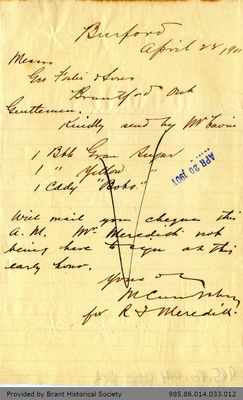 Burford
April 22 190
Messrs
Geo Foster & Sons
Brantford Ont
Gentlemen.
Kindly send by Mr
1 Bbl Gran Sugar
1 " Yellow "
1 Caddy "Bobs"
APR 20 1901
Will mail you cheque this
A. M. Mr. Meredith not
being here to sign at this
early hour.
Yours
for R Meredith
Provided by Brant Historical Society
985.86.014.033.012